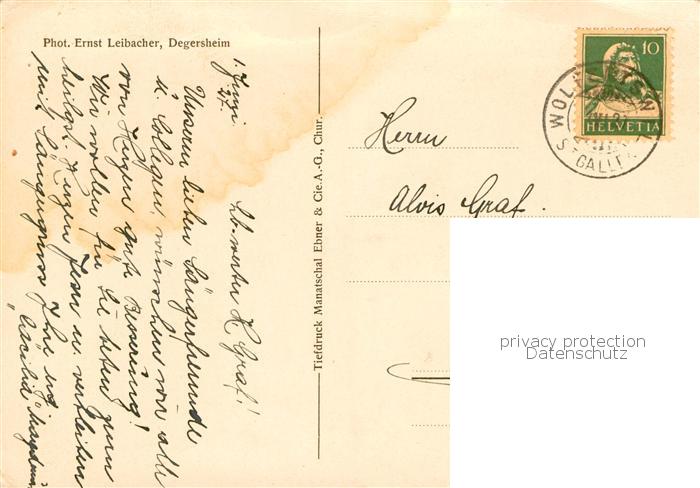 Phot. Ernst Leibacher, Degersheim
1. Juni
27.
Lb. werter H. Graf!
Unserm lieben Sängerfreunde
u. Collegen, wünschen wir alle
von Herzen gute Besserung!
Wir wollen für Sie beten zum
heiligst. Herzen Jesu u. verbleiben
mit Sängergruss Ihre
Tiefdruck Manatschal Ebner & Cie. A.-G., Chur.
10
HELVETIA
ST. GALLEN
Herrn
Alois Graf.
privacy protection
Datenschutz